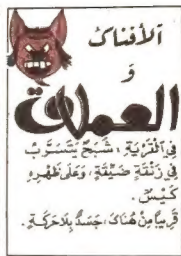 الأفناك
و
العملاقة
في القرية : شبح يتسرب
في زنقة ضيقة، وعلى ظهره
كيس.
قريبا من هناك : جسد بلا حركة.